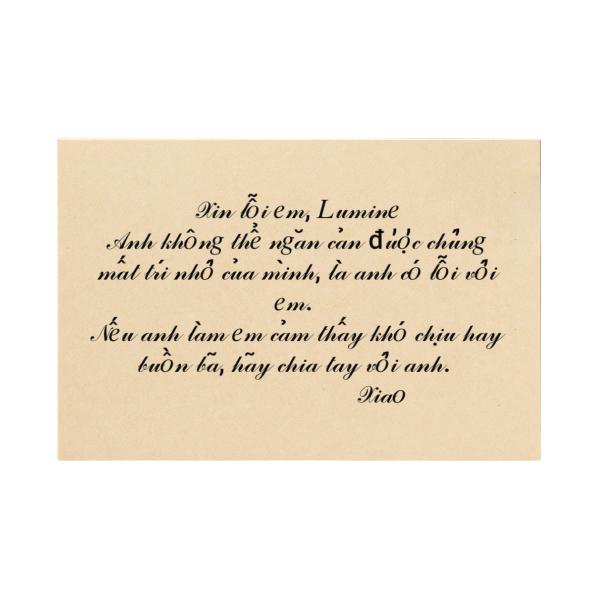 Xin lỗi em, Lumine
Anh không thể ngăn cản được chứng
mất trí nhớ của mình, là anh có lỗi với
em.
Nếu anh làm em cảm thấy khó chịu hay
buồn bã, hãy chia tay với anh.
Xiao